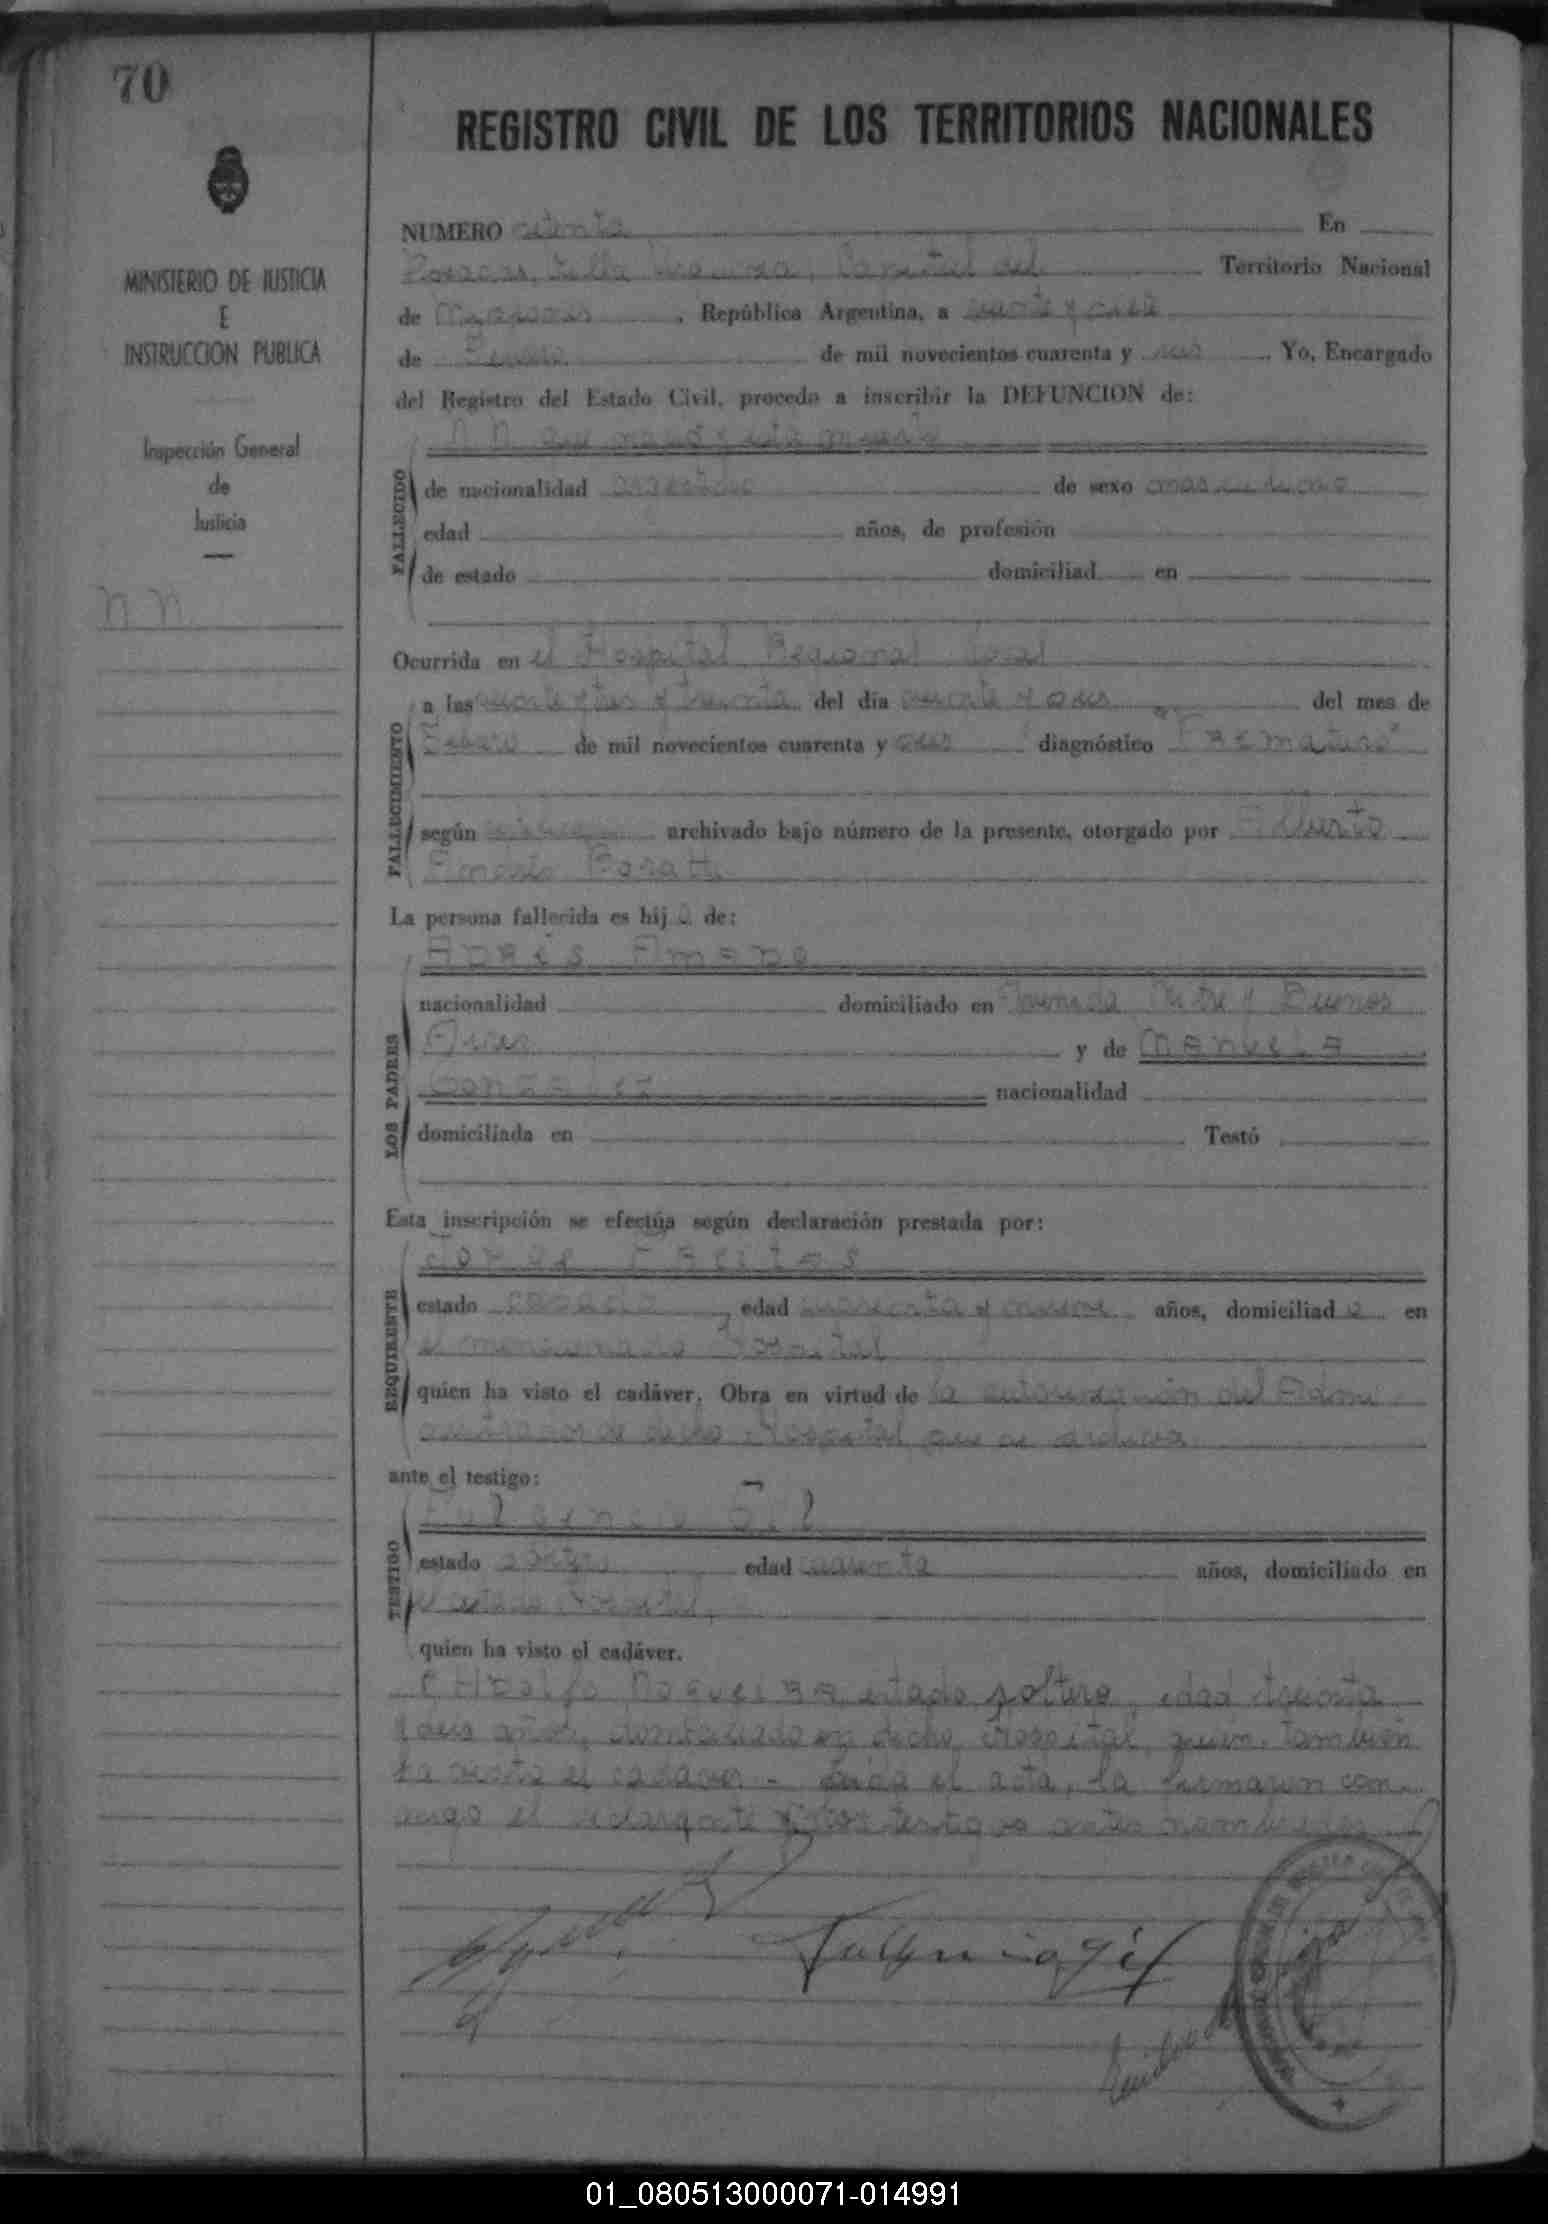 70
REGISTRO CIVIL DE LOS TERRITORIOS NACIONALES
MINISTERIO DE JUSTICIA
E
INSTRUCCION PUBLICA
Inspección General
de
Justicia
N N
NUMERO setenta En
Posadas, Capital del Territorio Nacional
de Misiones, República Argentina, a veinte y siete
de de mil novecientos cuarenta y seis. Yo, Encargado
del Registro del Estado Civil, procedo a inscribir la DEFUNCION de:
N N que nació y esta muerto
FALLECIDO
de nacionalidad argentino de sexo masculino
edad años, de profesión
de estado domiciliad en
Ocurrida en el Hospital Regional local
FALLECIMIENTO
a las veinte y tres y treinta del día veinte y seis del mes de
de mil novecientos cuarenta y seis diagnóstico "Prematuro"
según archivado bajo número de la presente, otorgado por Alberto
La persona fallecida es hijo de:
LOS PADRES
nacionalidad domiciliado en Avenida Mitre y Buenos
Aires y de Manuela
Gonzalez nacionalidad
domiciliada en Testó
Esta inscripción se efectúa según declaración prestada por:
REQUIRENTE
Jorge Freitas
estado casado, edad cuarenta y nueve años, domiciliado en
el mencionado Hospital
quien ha visto el cadáver. Obra en virtud de la autorización del Admi-
nistrador de dicho Hospital que se archiva
ante el testigo:
TESTIGO
Fulgencio Gil
estado soltero edad años, domiciliado en
el citado Hospital,
quien ha visto el cadáver.
estado soltero, edad treinta
y seis años, domiciliado en dicho Hospital, quien también
ha visto el cadaver - Leida el acta, la firmaron con-
migo el declarante y los testigos antes nombrados
Fulgencio Gil
01_080513000071-014991